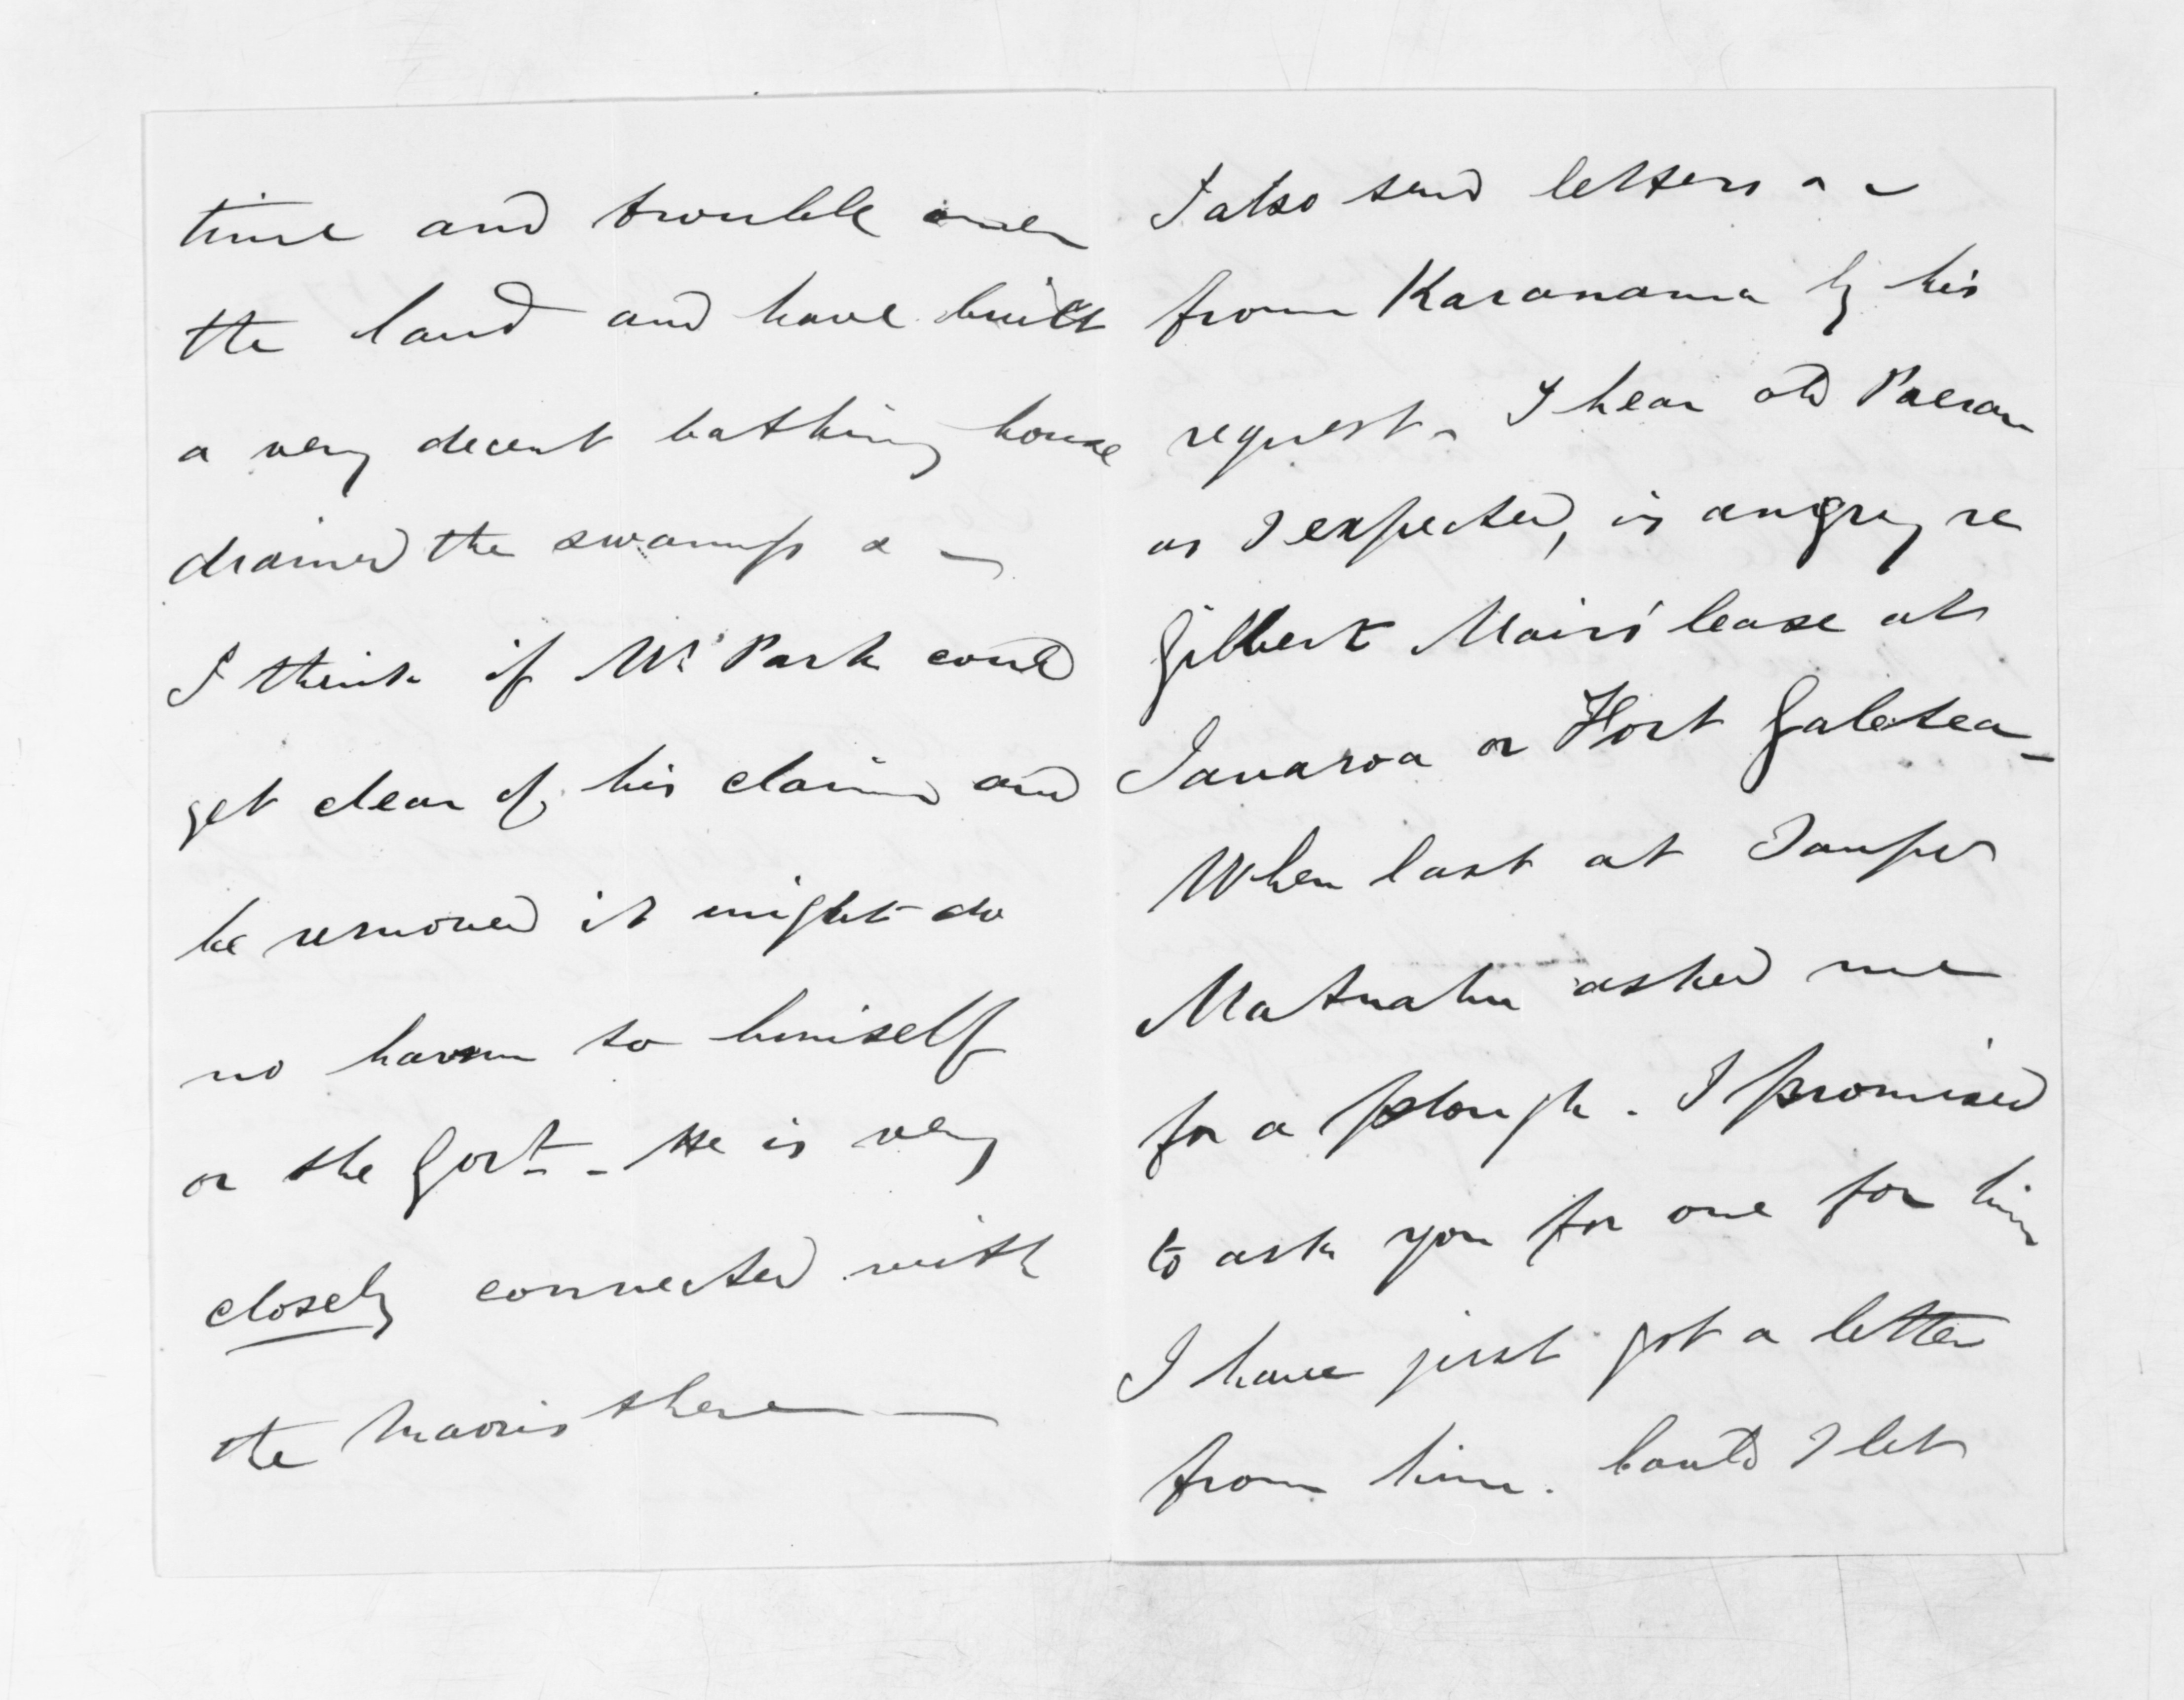 time and trouble over
the land and have built
a very decent bathing house
drained the swamps & —
I think if Mr Park could
get clear of his claim and
be removed it might do
no harm to himself
or the Govt - He is very
closely connected with
the Maoris there —
I also send letters
from Karanama by his
request - I hear old
as I expected, is angry re
Gilbert Mairs' lease at
Tauaroa or Fort Galatea -
When last at Taupo
Matuahu asked me
for a plough. I promised
to ask you for one for him
I have just got a letter
from him. Could I let